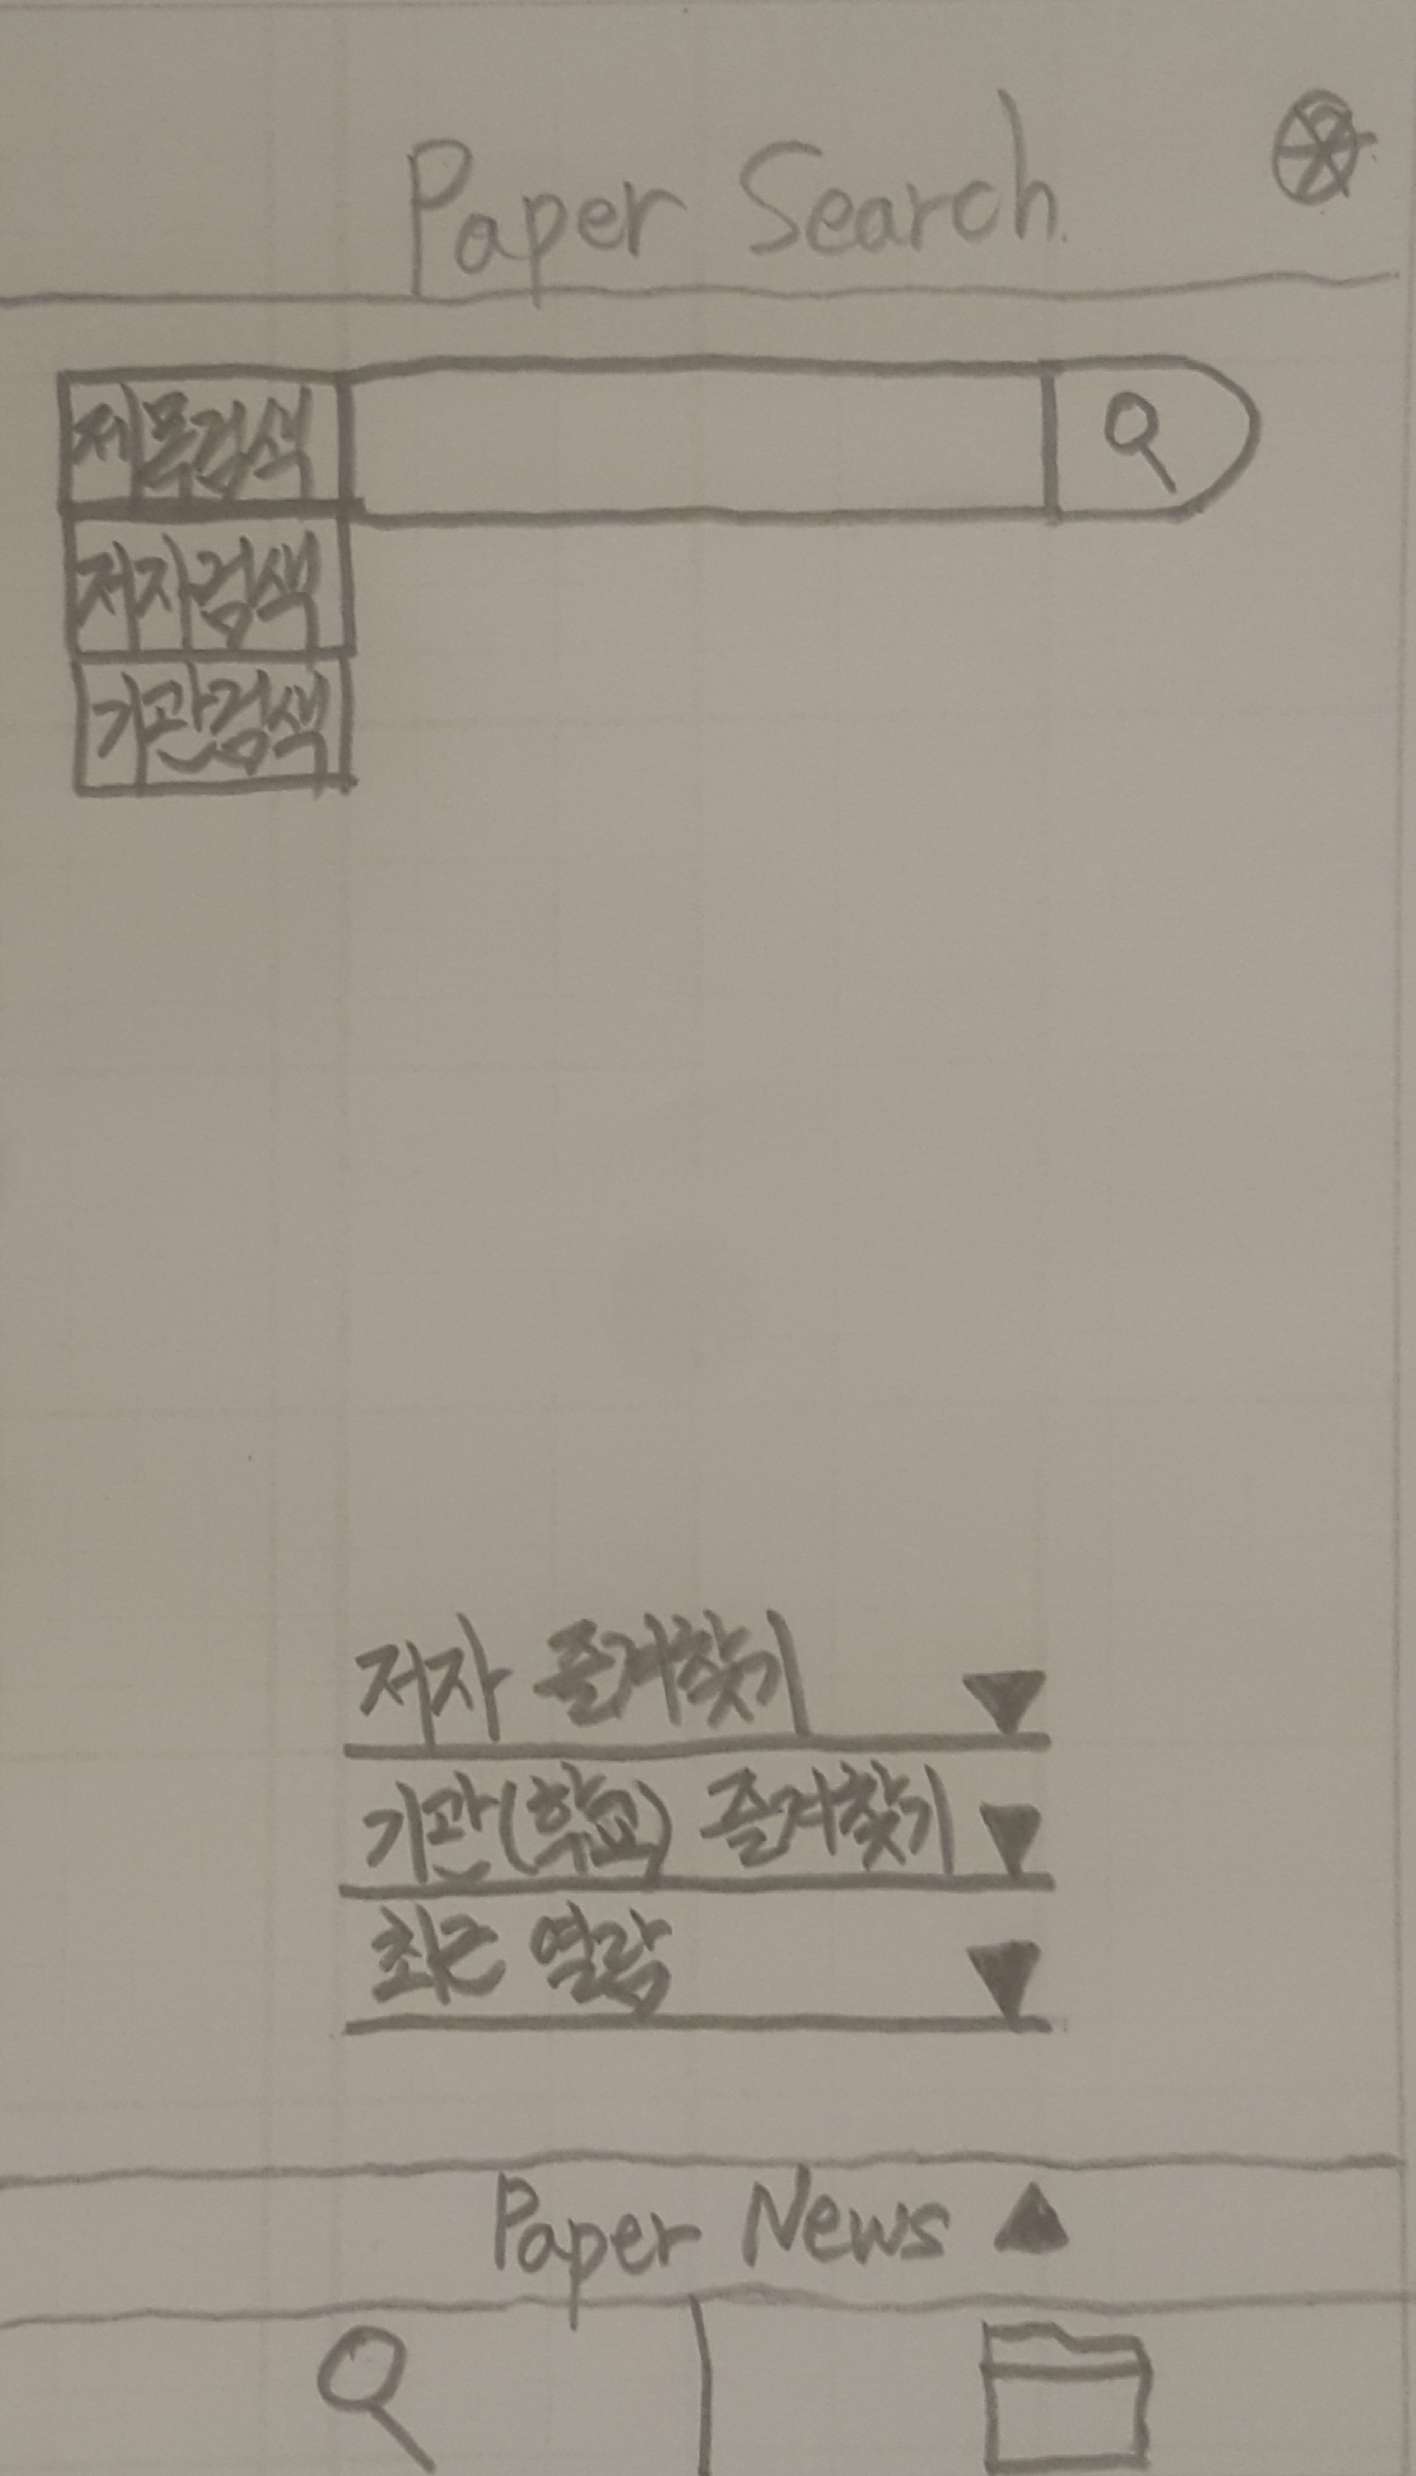 Paper Search
제목검색
저자검색
기관검색
저자 즐겨찾기
기관(학교) 즐겨찾기
최근 열람
Paper News